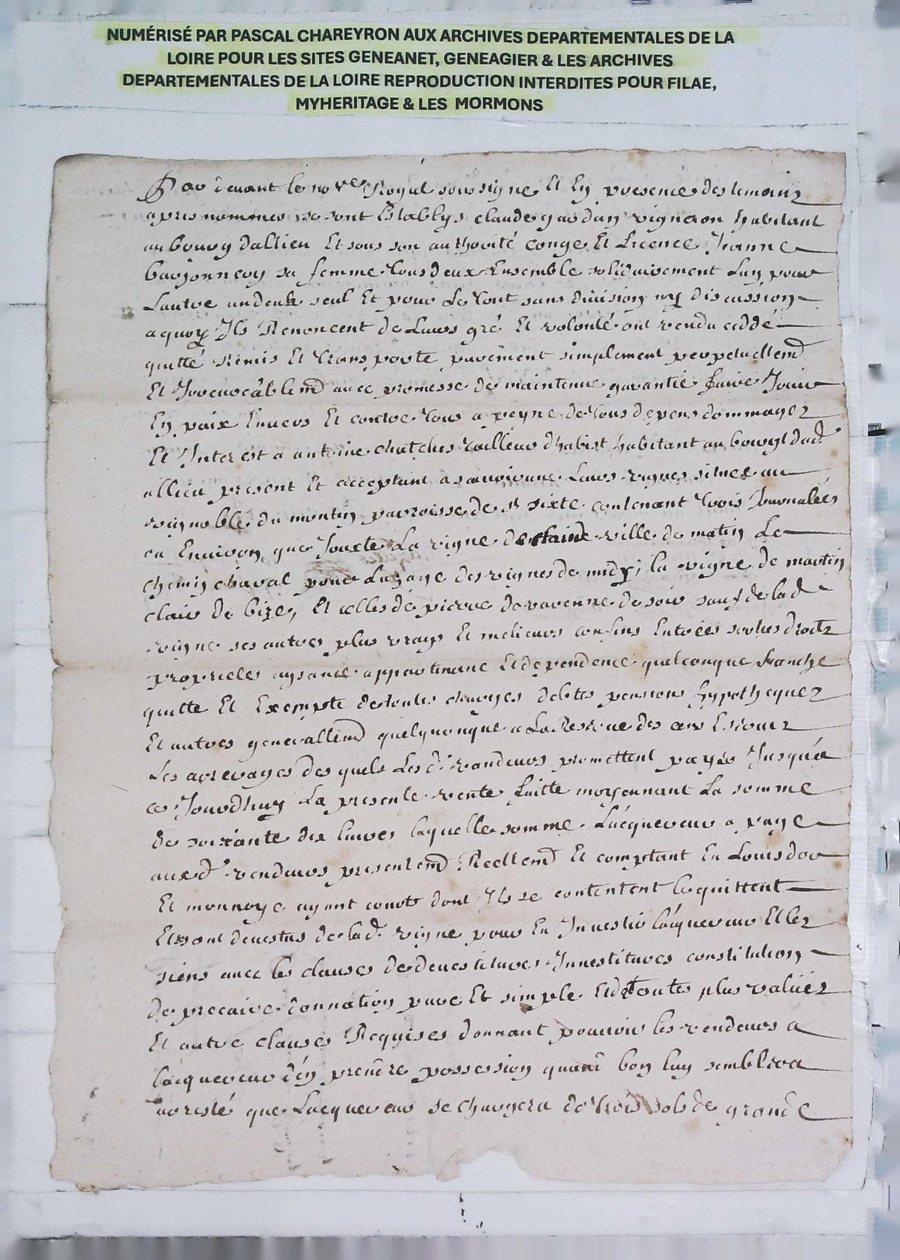 NUMÉRISÉ PAR PASCAL CHAREYRON AUX ARCHIVES DEPARTEMENTALES DE LA
LOIRE POUR LES SITES GENEANET, GENEAGIER & LES ARCHIVES
DEPARTEMENTALES DE LA LOIRE REPRODUCTION INTERDITES POUR FILAE,
MYHERITAGE & LES MORMONS
Par devant le no.re Royal soussigne Et En presence des temoins
apres nommes se sont Establys claude vigneron habitant
au bourg dallieu Et sous son authorité conge Et Licence Jeanne
sa femme tous deux Ensemble solidairement Luy pour
Lautre un deux seul Et pour Le tout sans division ny discussion
a quoy Ils Renoncent de Leurs gré Et volonté ont vendu ceddé
quitté Remis Et transporte purement simplement perpetuellem.t
Et Irrevocablem.t avec promesse de maintenue garantie faire Jouir
En paix Envers Et contre tous a peyne de tous depens dommages
Et Interest a antoine tailleur dhabist habitant au bourg dud.
allieu present Et acceptant a scavoir une Leurs vignes situes au
vignoble du montin parroisse de s.t sixte contenant trois Journalées
ou Environ que Jouxte La vigne de ville de matin Le
chemin cheval pour Luzage des vignes de midy, la vigne de martin
clair de bize, Et celles de pierre de ravenne de soir sauf de lad.
vigne ses autres plus vrays Et melieurs confins Entrées sorties droits
proprietes aysance appartinance Et dependence quelconque franche
quitte Et Exempte de toutes charges debtes pensions hypotheques
Et autres generallem.t quelquonque a La Reserve des
Les arrerages des quels Les d. vandeurs promettent payer Jusques
ce Jourdhuy La presente vente faitte moyennant La somme
de soixante dix livres laquelle somme Lacquereur a paye
aux d. vendeurs presentem.t Reellem.t Et comptant En Louis dor
Et monnoye ayant cours dont Ils se contentent lequittent
Et sont devestus de lad. vigne pour En Investir Lacquereur Et les
siens avec les clauses de devestitures Investitures constitution
de precaire donnation pure Et simple Et de toutes plus values
Et autre clauses Requises donnant pouvoir les vendeurs a
lacquereur d'en prendre possession quand bon luy semblera
arresté que Lacquereur se chargera de trois sols de grande